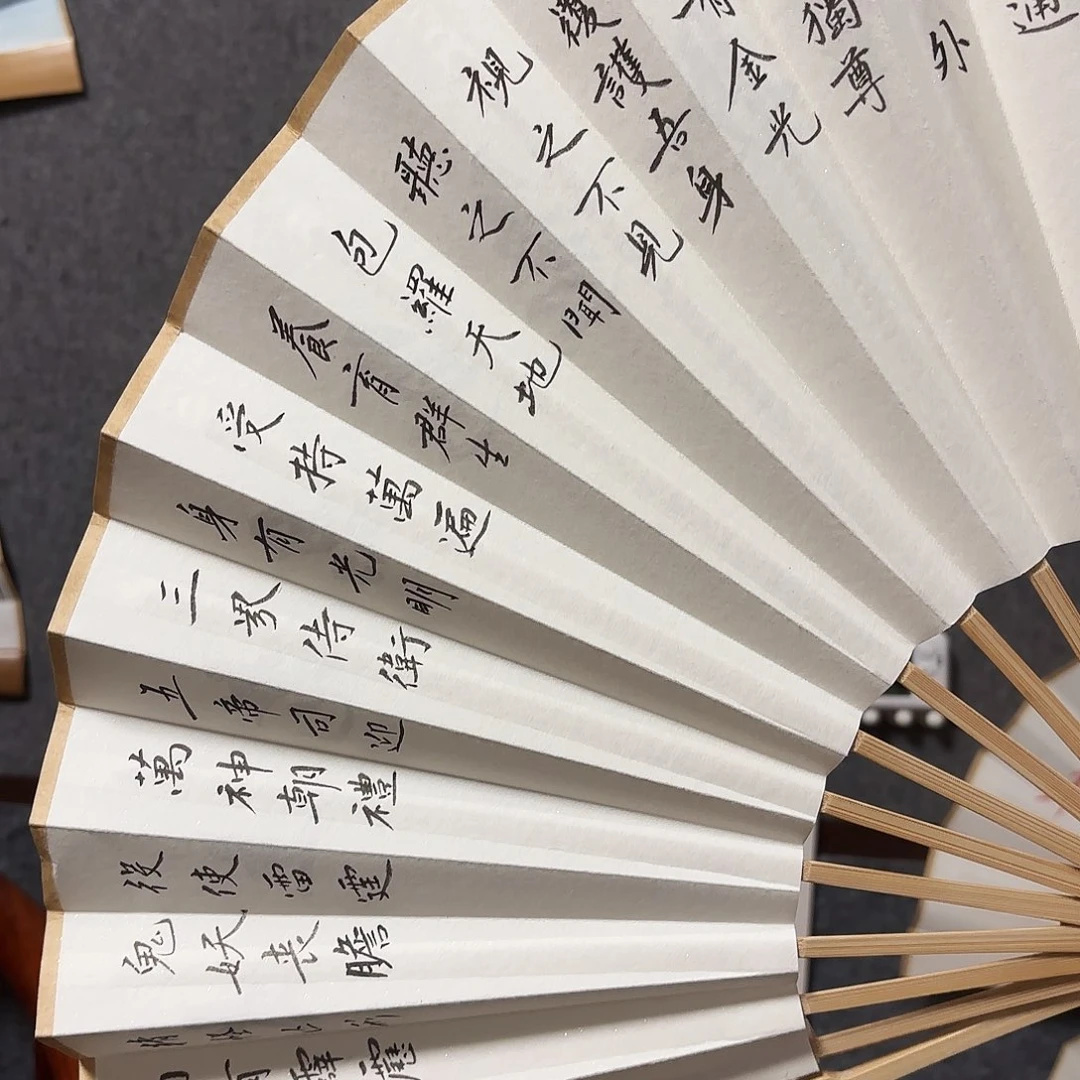 通
外
獨尊
有金光
覆護吾身
視之不見
聽之不聞
包羅天地
養育群生
受持萬遍
身有光明
三界侍衛
五帝司迎
萬神朝禮
役使雷霆
鬼妖喪膽
有霹靂